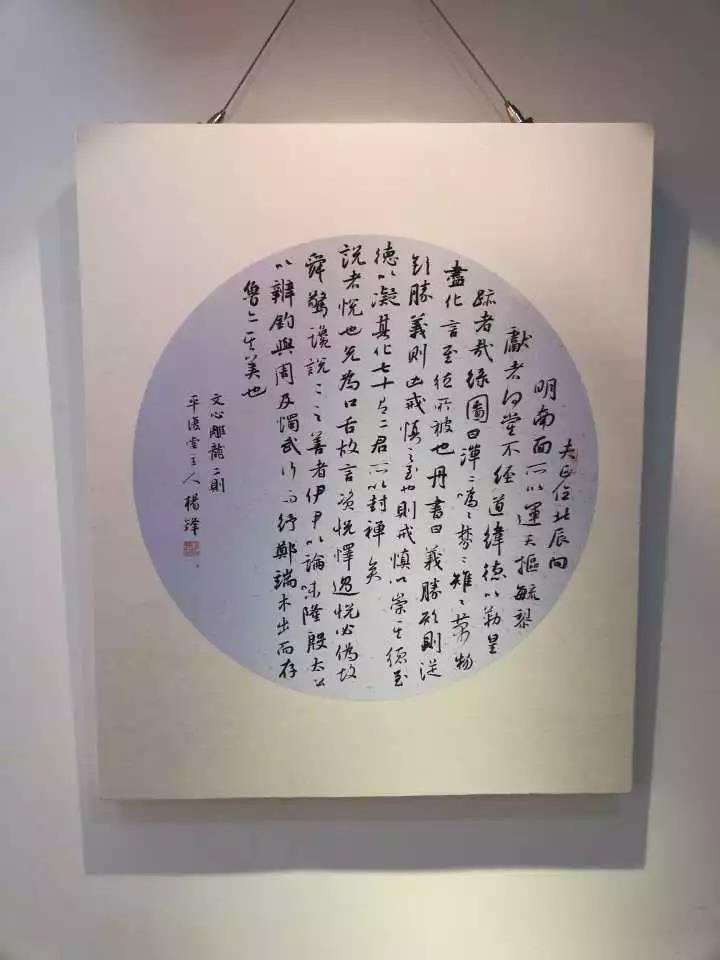 夫正位北辰向
明南面所以運天樞毓黎
獻者何嘗不經道緯德以勒皇
蹟者哉綠圖曰潬〻噅〻棼〻雉〻萬物
盡化言至德所被也丹書曰義勝欲則從
欲勝義則凶戒慎之至也則戒慎以崇其德至
德以凝其化七十有二君所以封禪矣
說者悅也兌為口舌故言資悅懌過悅必偽故
舜驚讒說〻之善者伊尹以論味隆殷太公
以辨釣興周及燭武行而紓鄭端木出而存
魯亦其美也
文心雕龍二則
平堂主人楊